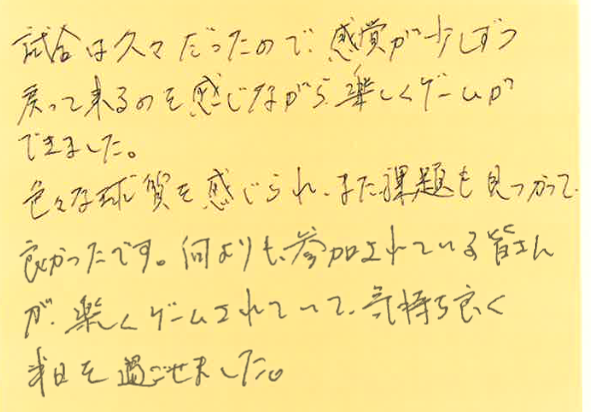 試合は久々だったので、感覚が少しずつ
戻って来るのを感じながら、楽しくゲームが
できました。
色々な球質を感じられ、また課題も見つかって、
良かったです。何よりも、参加されている皆さん
が、楽しくゲームされていて、気持ち良く
半日を過ごせました。